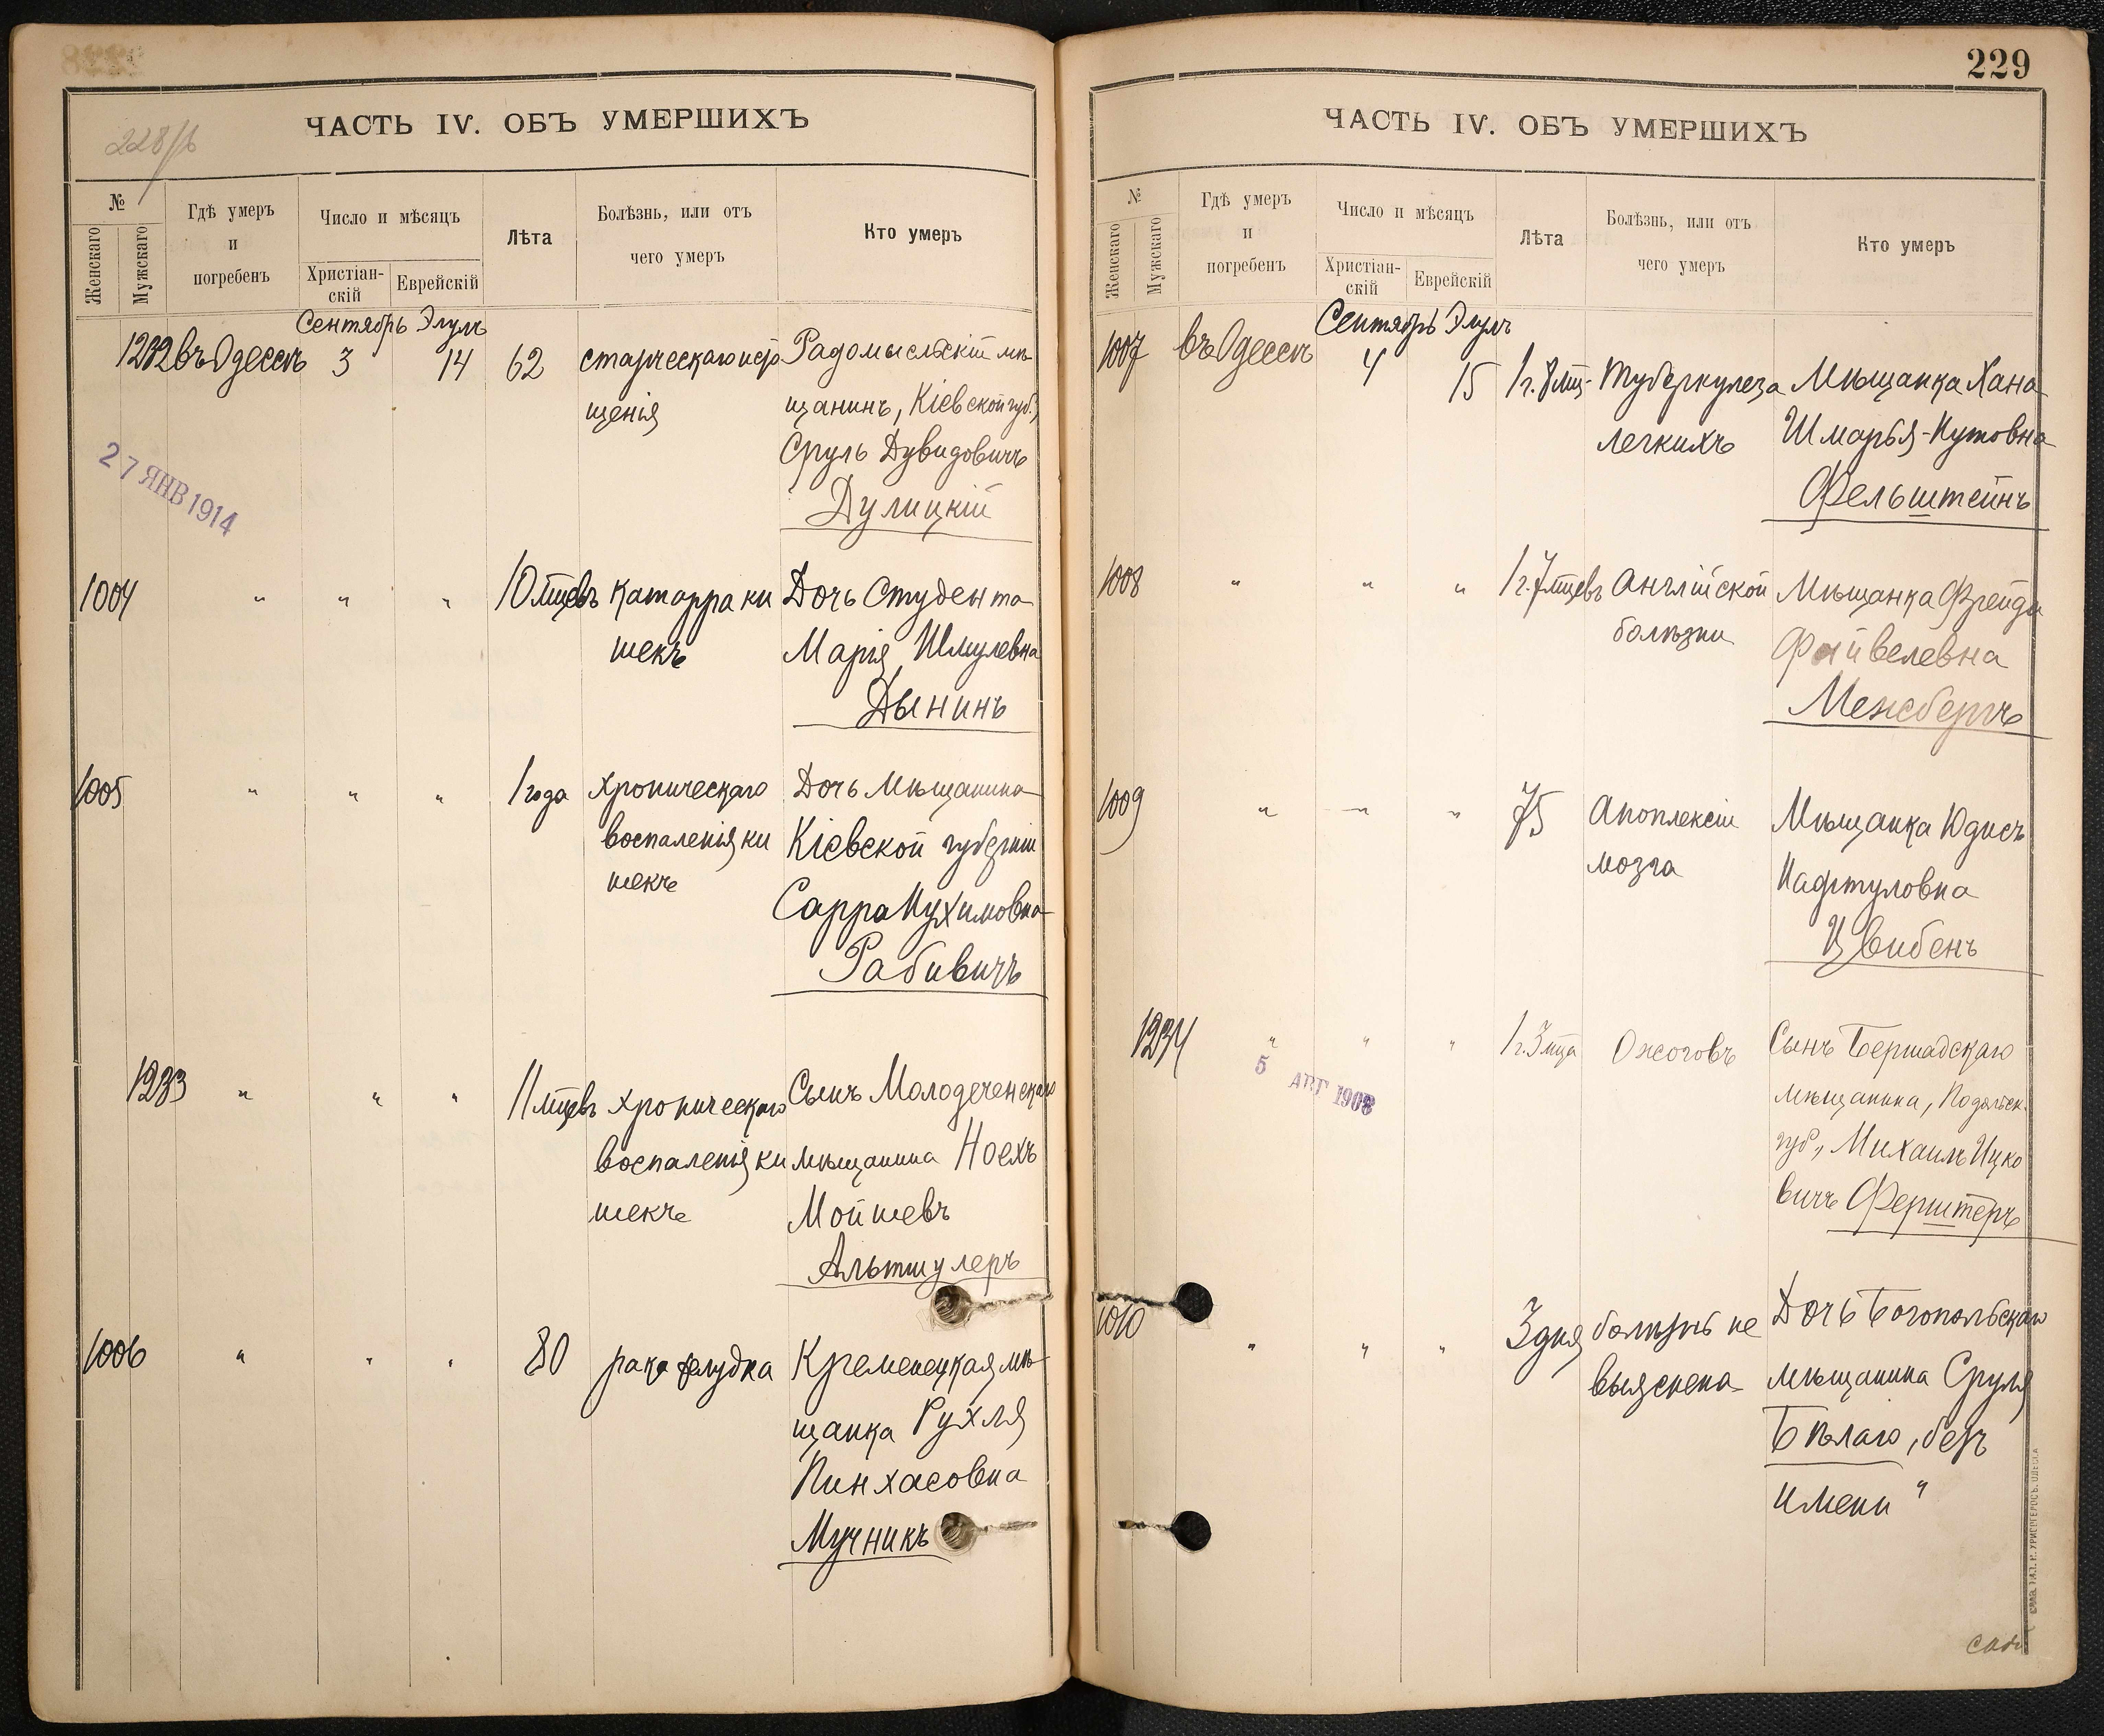 228
228/б
ЧАСТЬ IV. ОБЪ УМЕРШИХЪ
№
Женскаго
Мужскаго
Гдѣ умеръ
и
погребенъ
Число и мѣсяцъ
Христіан-
скій
Еврейскій
Лѣта
Болѣзнь, или отъ
чего умеръ
Кто умеръ
Сентябрь Элулъ
1232 въ Одессѣ 3 14 62 старческаго исто Радомысльскій мѣ-
щенія щанинъ, Кіевской губ.,
Сруль Дувидовичъ
Дулицкій
27 ЯНВ 1914
1004 " " " 10 мцевъ Катарра ки Дочь Студента
шекъ Марія Шмулевна
Дынинъ
1005 " " " 1 года хроническаго Дочь мѣщанина
воспаленія ки Кіевской губерніи
шекъ Сарра Нухимовна
Рабивичъ
1233 " " " 11 мцевъ хроническаго Сынъ Молодеченскаго
воспаленія ки мѣщанина Ноехъ
шекъ Мойшевъ
Альтшулеръ
1006 " " " 80 рака желудка Кременецкая мѣ-
щанка Рухля
Пинхасовна
Мучникъ
229
ЧАСТЬ IV. ОБЪ УМЕРШИХЪ
№
Женскаго
Мужскаго
Гдѣ умеръ
и
погребенъ
Число и мѣсяцъ
Христіан-
скій
Еврейскій
Лѣта
Болѣзнь, или отъ
чего умеръ
Кто умеръ
Сентябрь Элулъ
1007 въ Одессѣ 4 15 1 г. 8 мц- Туберкулеза Мѣщанка Хана
легкихъ Шмарья-Нутовна
Фельштейнъ
1008 " " " 1 г. 7 мцевъ Англійской Мѣщанка Фрейда
болѣзни Файвелевна
Менсбергъ
1009 " " " 75 Апоплексіи Мѣщанка Юдисъ
мозга Нафтуловна
Цвибенъ
1234 " " " 1 г. 3 мца Ожоговъ Сынъ Бершадскаго
5 АВГ 1908
мѣщанина, Подольск.
губ., Михаилъ Ицко
вичъ Ферштеръ
1010 " " " 3 дня болѣзнь не Дочь Богопольскаго
выяснена мѣщанина Сруля
Бѣлаго, безъ
имени "